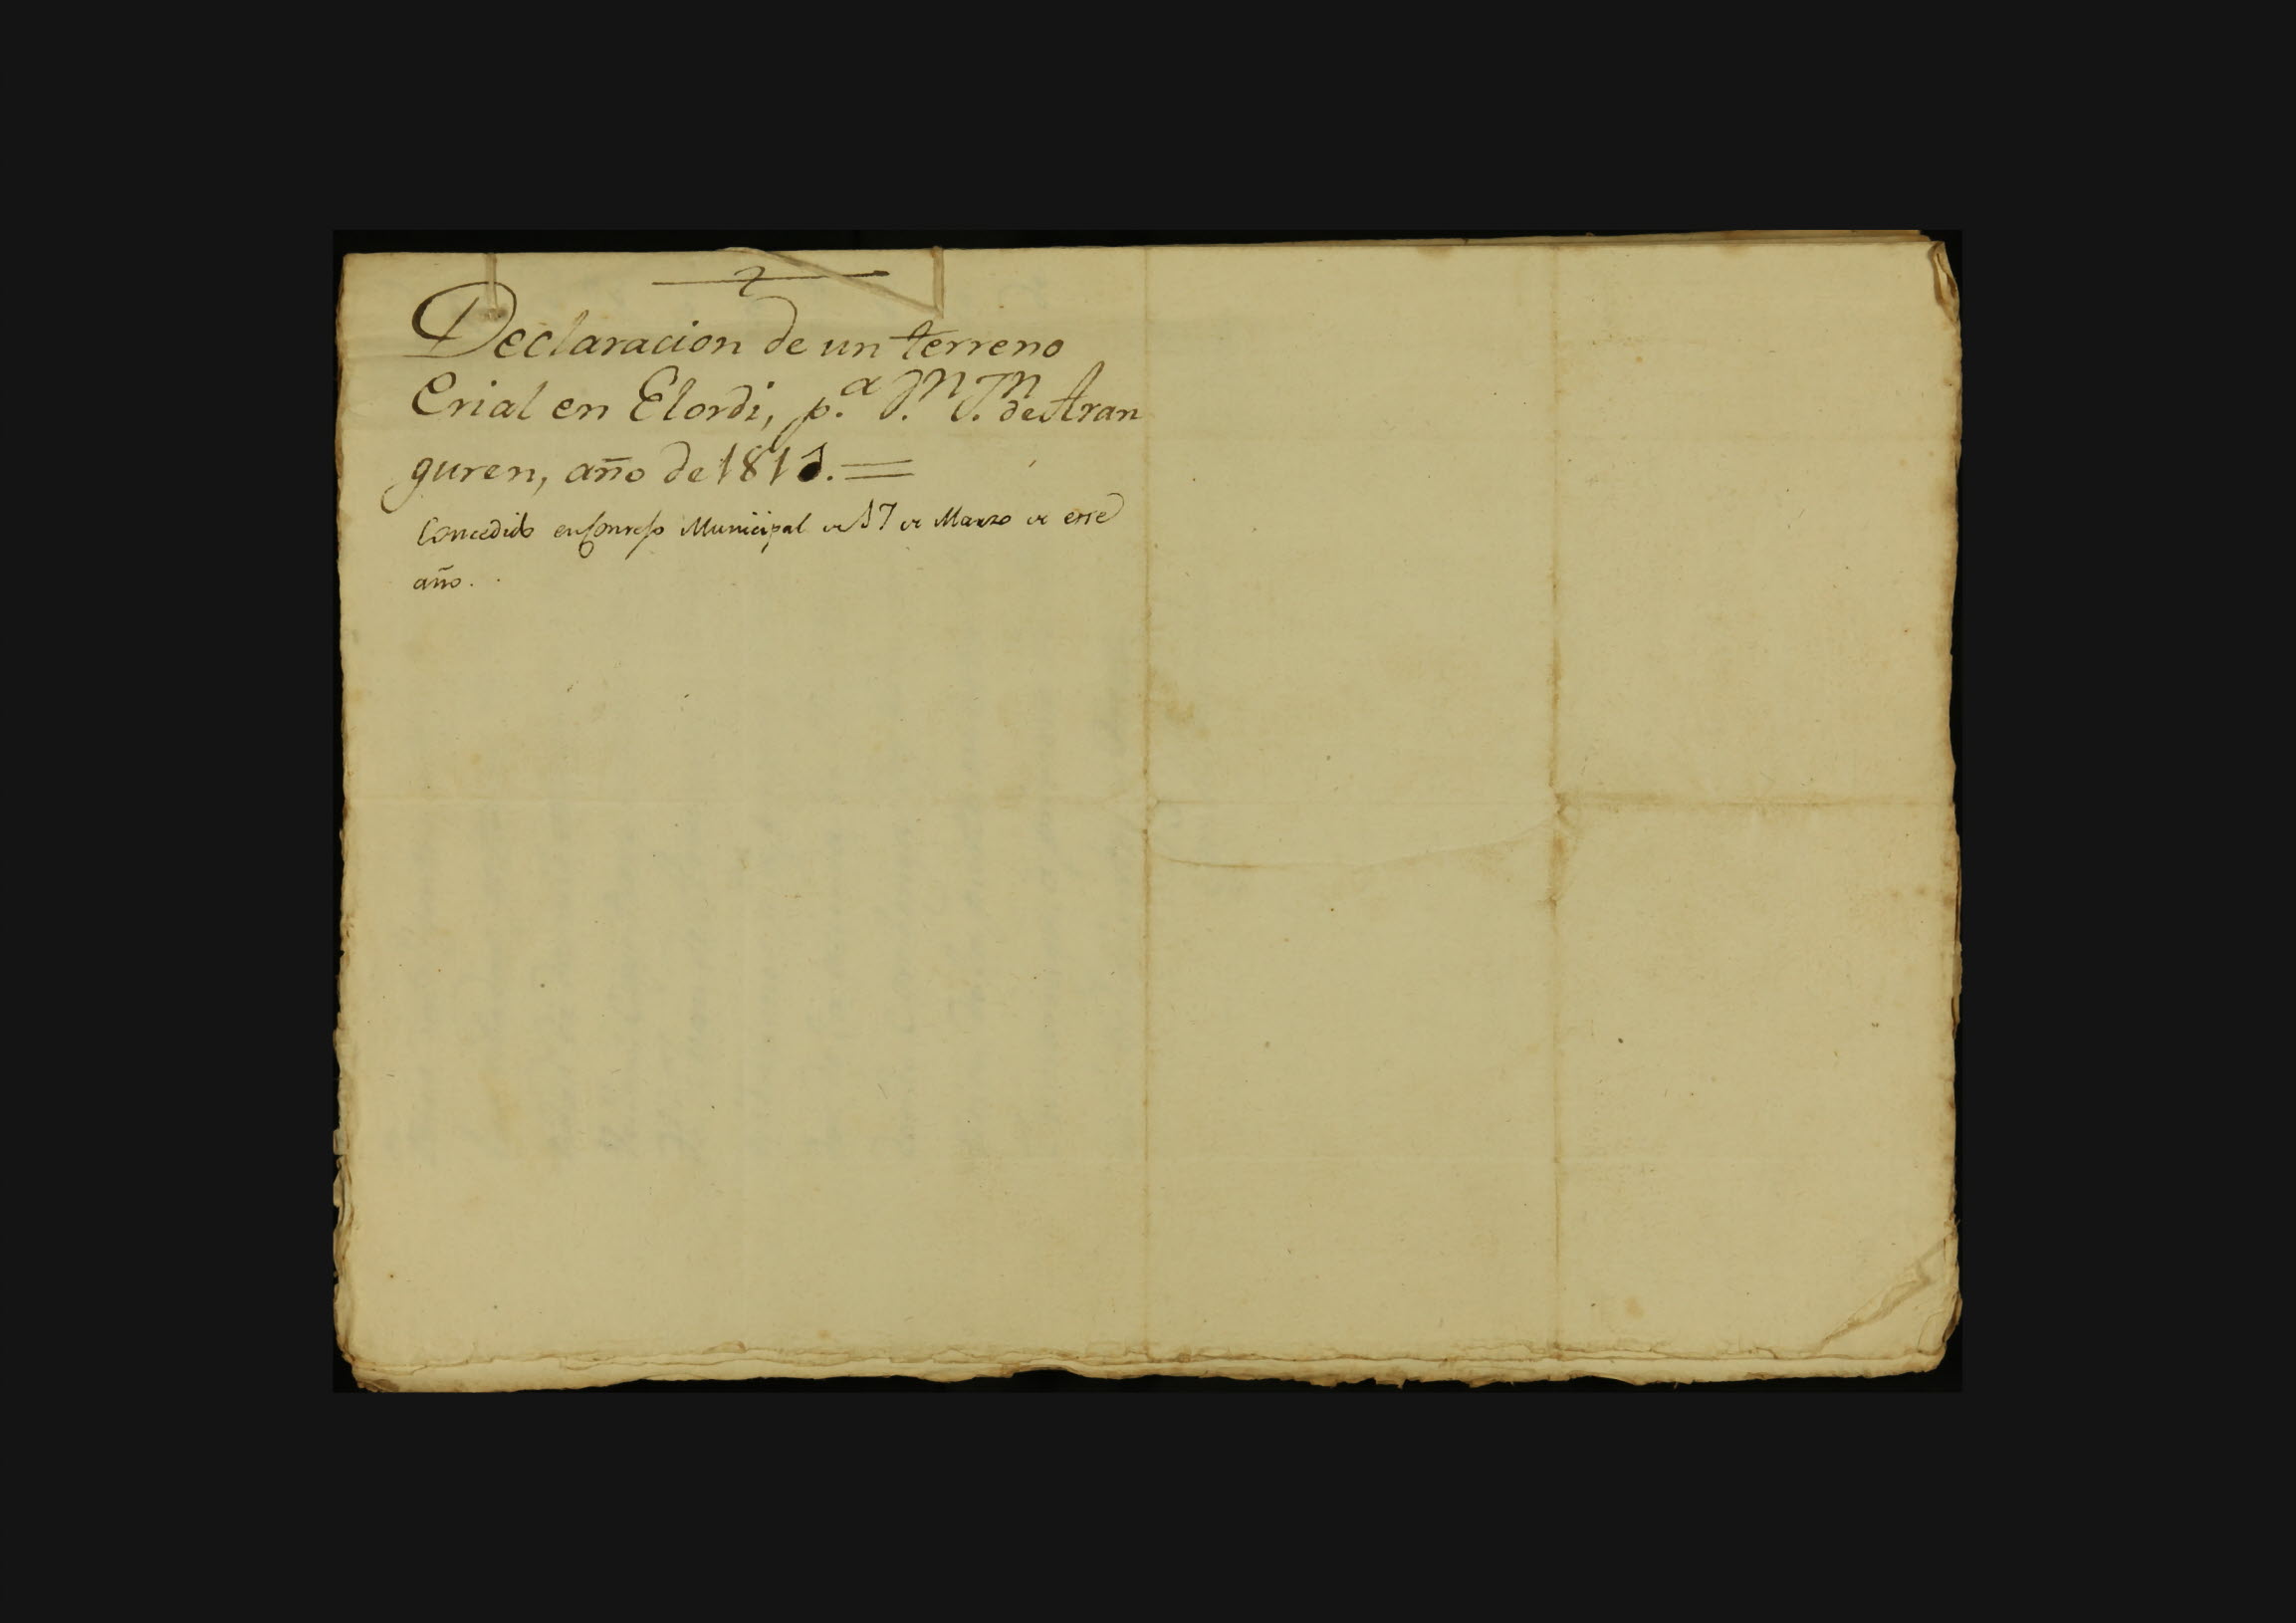 Declaracion de un terreno
Erial en Elordi, p.ª J.n J.n de Aran
guren, año de 1811.=
Concedido en Congreso Municipal de 17 de Marzo de este
año.